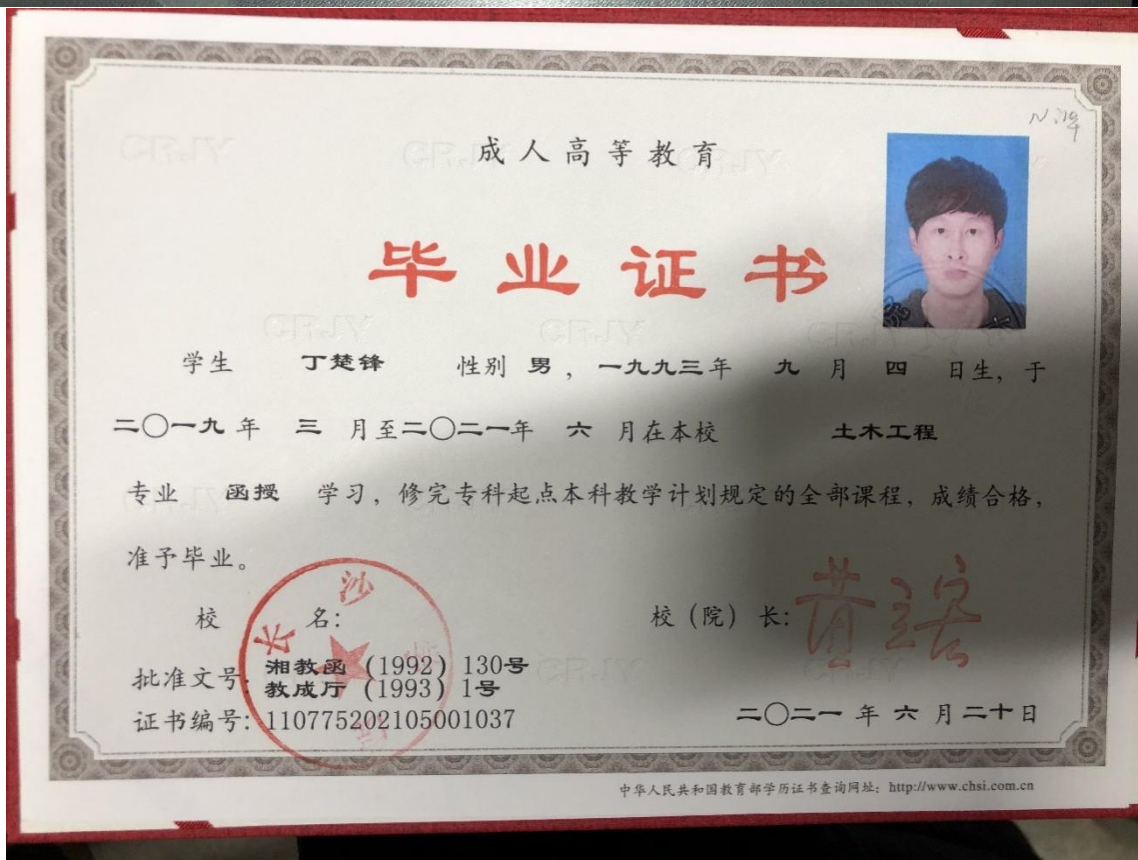 成人高等教育
毕业证书
学生 丁楚锋 性别 男，一九九三年 九 月 四 日生，于
二〇一九年 三 月至二〇二一年 六 月在本校 土木工程
专业 函授 学习，修完专科起点本科教学计划规定的全部课程，成绩合格，
准予毕业。
校 名：
校（院）长：
批准文号：湘教函（1992）130号
教成厅（1993）1号
证书编号：110775202105001037
二〇二一年六月二十日
中华人民共和国教育部学历证书查询网址：http://www.chsi.com.cn
CRJY
长沙